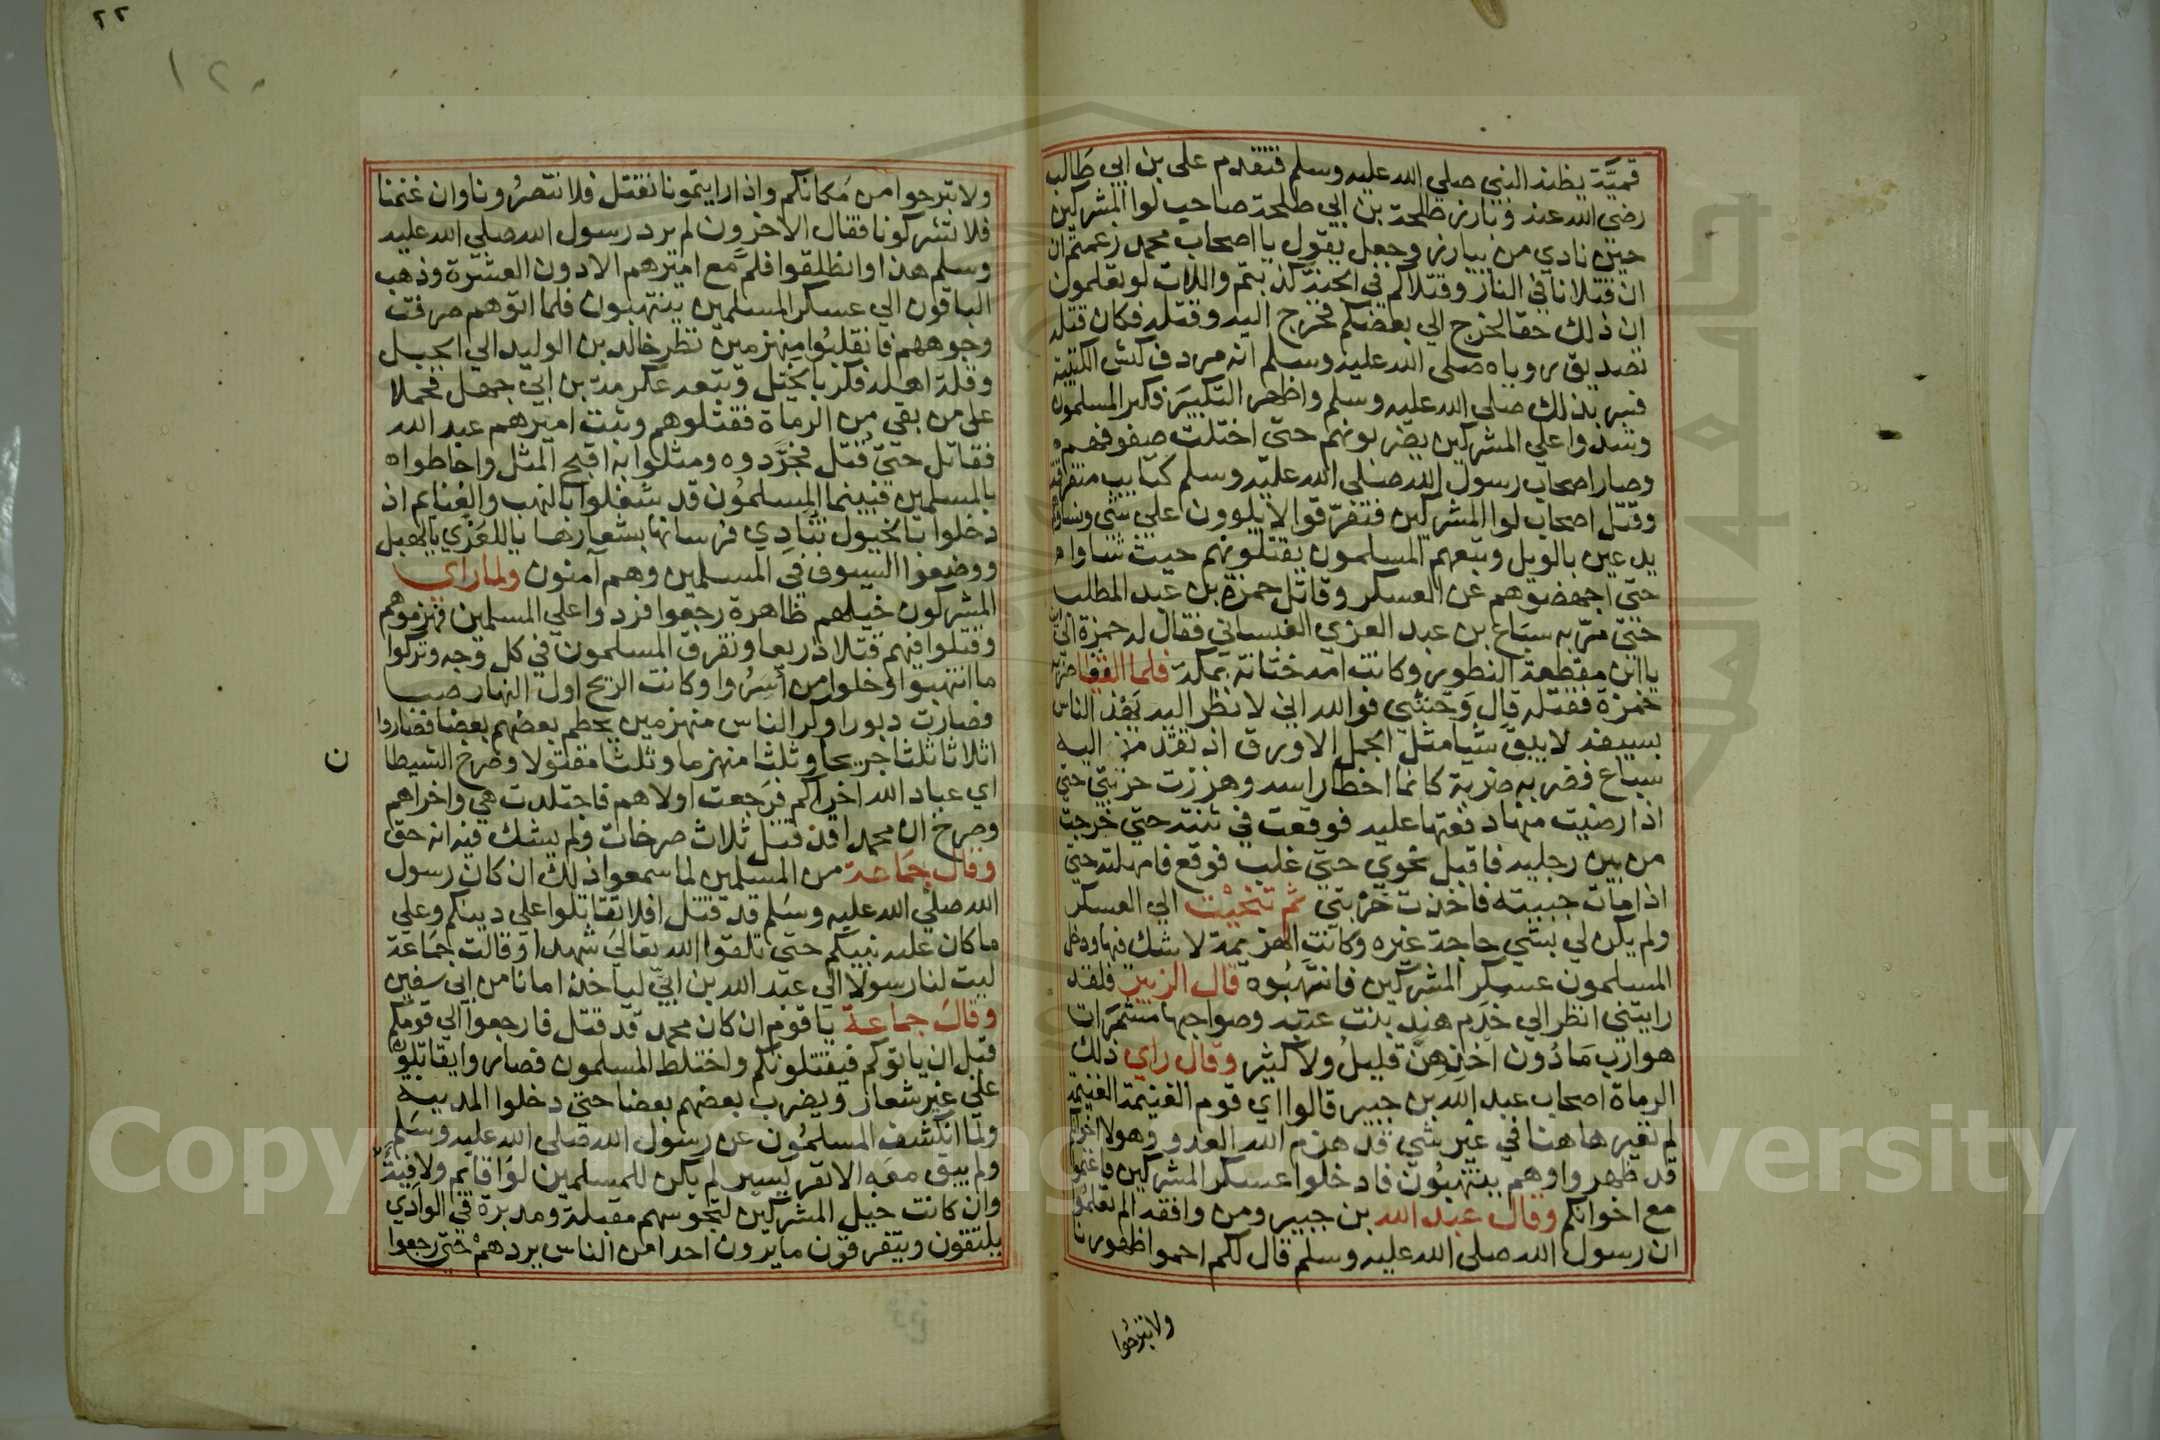 قميّة يظنه النبي صلي الله عليه وسلم فتقدم علي بن ابي طالب
رضي الله عنه وبارز طلحة بن ابي طلحة صاحب لوا المشركين
حين نادي من يبارز وجعل يقول يا اصحاب محمد زعمتم ان
ان قتلانا في النار وقتلاكم في الجنة كذبتم واللات لو تعلمون
ان ذلك حقا لخرج الي بعضكم فخرج اليه وقتله فكان قتله
تصديق روياه صلي الله عليه وسلم انه مردف كبش الكتيبة
فسر بذلك صلي الله عليه وسلم واظهر التكبير فكبر المسلمون
وشدوا علي المشركين يضربونهم حتي اختلت صفوفهم
وصار اصحاب رسول الله صلي الله عليه وسلم كتايب متفرقة
وقتل اصحاب لوا المشركين فتفرّقوا لا يلوون علي شي ونساوهم
يدعين بالويل وتبعهم المسلمون يقتلونهم حيث شاوا
حتي اجهضوهم عن العسكر وقاتل حمزة بن عبد المطلب
حتي مرّ به سباع بن عبد العزي الغبساني فقال له حمزة اليّ
يا ابن مقطعة البظور وكانت امه ختانة بمكة فلما التقيا ضربه
حمزة فقتله قال وحشي فوالله اني لانظر اليه يهذ الناس
بسيفه لا يبق شيا مثل الجمل الاورق اذ تقدم اليه
سباع فضربه ضربة كانما اخطا راسه وهززت حربتي حتي
اذا رضيت منها دفعتها عليه فوقعت في ثنته حتي خرجت
من بين رجليه فاقبل نحوي حتي غلب فوقع فامهلته حتي
اذا مات جيته فاخذت حربتي ثم تنحيت الي العسكر
ولم يكن لي بشي حاجة غيره وكانت الهزيمة لا شك فيها ودخل
المسلمون عسكر المشركين فانتهبوه قال الزبير فلقد
رايتني انظر الي خدم هند بنت عتبة وصواحبها مشمرات
هوارب مادون اخذهن قليل ولا كثير وقال راي ذلك
الرماة اصحاب عبد الله بن جبير قالوا اي قوم الغنيمة الغنيمة
لم نقيم هاهنا في غير شي قد هزم الله العدو وهولا اخوانكم
قد ظهروا وهم ينتهبون فادخلوا عسكر المشركين فاغنموا
مع اخوانكم وقال عبد الله بن جبير ومن وافقه الم تعلموا
ان رسول الله صلي الله عليه وسلم قال لكم احموا ظهورنا
ولا تبرحوا
٢٢
١٢٠
ولا تبرحوا من مكانكم واذا رايتمونا نقتل فلا تنصرونا وان غنمنا
فلا تشركونا فقال الاخرون لم يرد رسول الله صلي الله عليه
وسلم هذا وانطلقوا فلم مع اميرهم الا دون العشرة وذهب
الباقون الي عسكر المسلمين ينتهبون فلما اتوهم صرفت
وجوههم فانقلبوا منهزمين نظر خالد بن الوليد الي الجبل
وقلة اهله فكر بالخيل وتبعه عكرمة بن ابي جهل فحملا
علي من بقي من الرماة فقتلوهم وثبت اميرهم عبد الله
فقاتل حتي قتل فجرّدوه ومثلوا به اقبح المثل واحاطوا
بالمسلمين فبينما المسلمون قد شغلوا بالنهب والغنايم اذ
دخلوا بالخيول تنادي فرسانها بشعارها يا للعزي يا لهبل
ووضعوا السيوف في المسلمين وهم آمنون ولما راي
المشركون خيلهم ظاهرة رجعوا فردوا علي المسلمين فهزموهم
وقتلوا فيهم قتلا ذريعا وتفرق المسلمون في كل وجه وتركوا
ما انتهبوا وخلوا من أسروا وكانت الريح اول النهار صبا
فصارت دبورا وكر الناس منهزمين يحطم بعضهم بعضا فصاروا
اثلاثا ثلثا جريحا وثلثا منهزما وثلثا مقتولا وصرخ الشيطا
ن
اي عباد الله اخراكم فرجعت اولاهم فاجتلدت هي واخراهم
وصرخ ان محمدا قد قتل ثلاث صرخات ولم يشك فيه انه حق
وقال جماعة من المسلمين لما سمعوا ذلك ان كان رسول
الله صلي الله عليه وسلم قد قتل افلا تقاتلوا علي دينكم وعلي
ما كان عليه نبيكم حتي تلقوا الله تعالي شهدا وقالت جماعة
ليت لنا رسولا الي عبد الله بن ابيّ لياخذ امانا من ابي سفين
وقال جماعة يا قوم ان كان محمد قد قتل فارجعوا الي قومكم
قبل ان ياتوكم فيقتلونكم واختلط المسلمون فصاروا يقاتلون
علي غير شعار ويضرب بعضهم بعضا حتي دخلوا المدينة
ولما انكشف المسلمون عن رسول الله صلي الله عليه وسلم
ولم يبق معه الا نفر يسير لم يكن للمسلمين لوا قايم ولا فيةٌ
وان كانت خيل المشركين لتحوسهم مقبلة ومدبرة في الوادي
يلتقون ويتفرقون ما يرون احدا من الناس يردهم حتي رجعوا